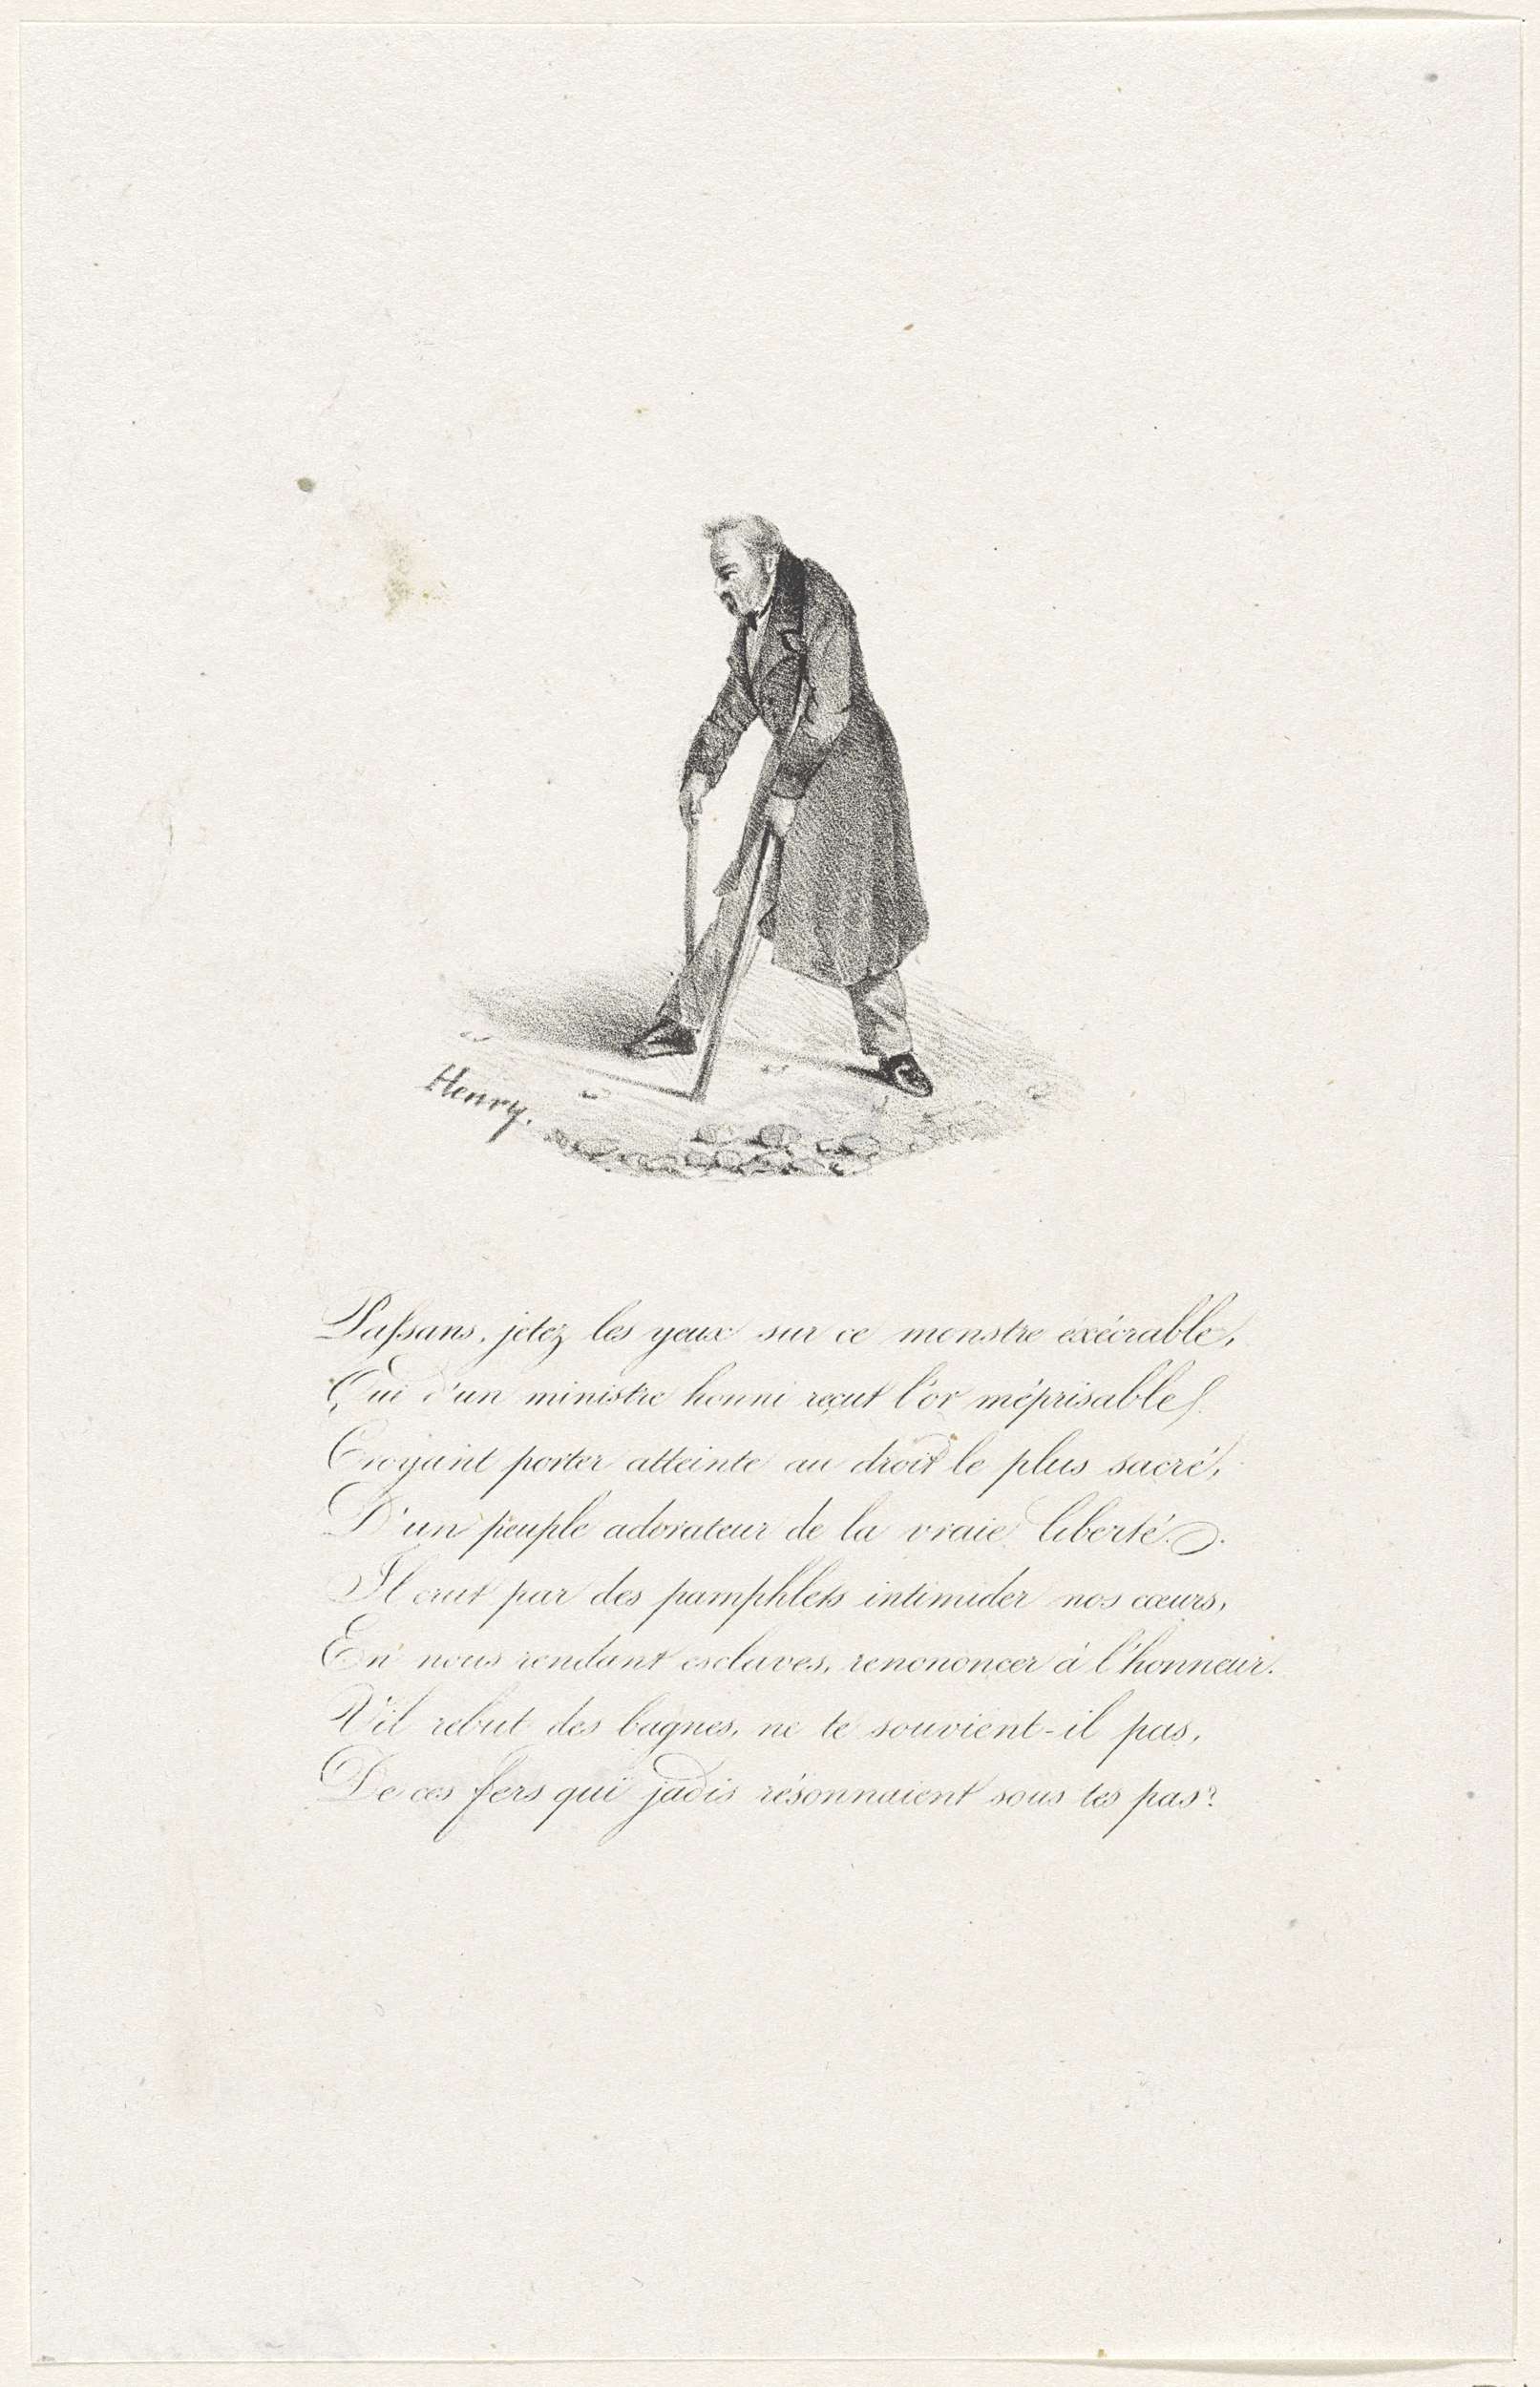 Henry.
Paſsans, jetez les yeux sur ce monstre éxécrable,
Qui d'un ministre honni reçut l'or méprisable,
Croyant porter atteinte au droit le plus sacré,
D'un peuple adorateur de la vraie liberté.
Il crut par des pamphlets intimider nos cœurs,
En nous rendant esclaves, renononcer à l'honneur.
Vil rebut des bagnes, ne te souvient-il pas,
De ces fers qui jadis résonnaient sous tes pas?